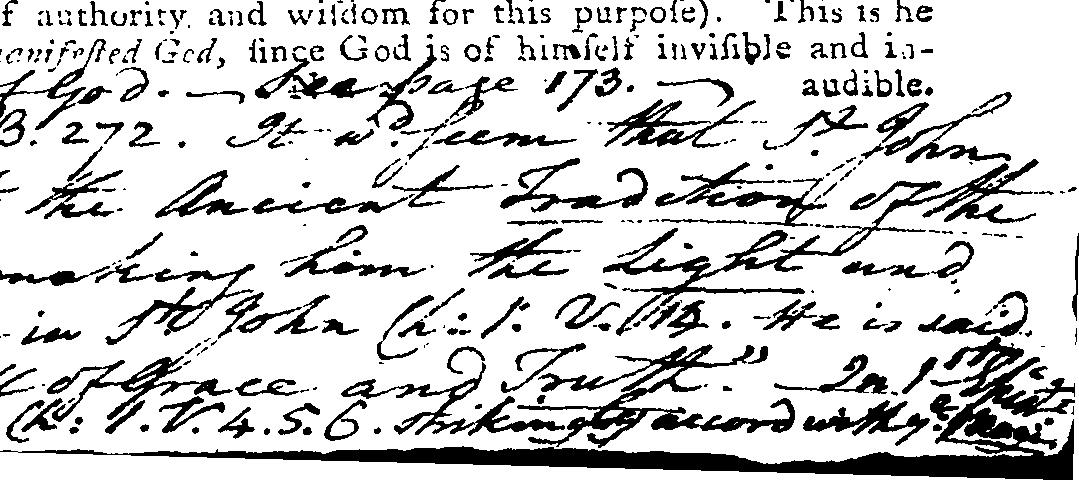 f authority, and wiſdom for this purpoſe). This is he
anifeſted God, ſince God is of himſelf inviſible and in-
audible.
f God. — See page 173. —
B. 272. It wd. seem that St. John
the Ancient Tradition of the
making him the Light and
in St John Ch: 1. V. 14. He is said
of Grace and Truth." — In 1st
Ch: 1. V. 4. 5. 6. strikingly accord with ye. Magi.